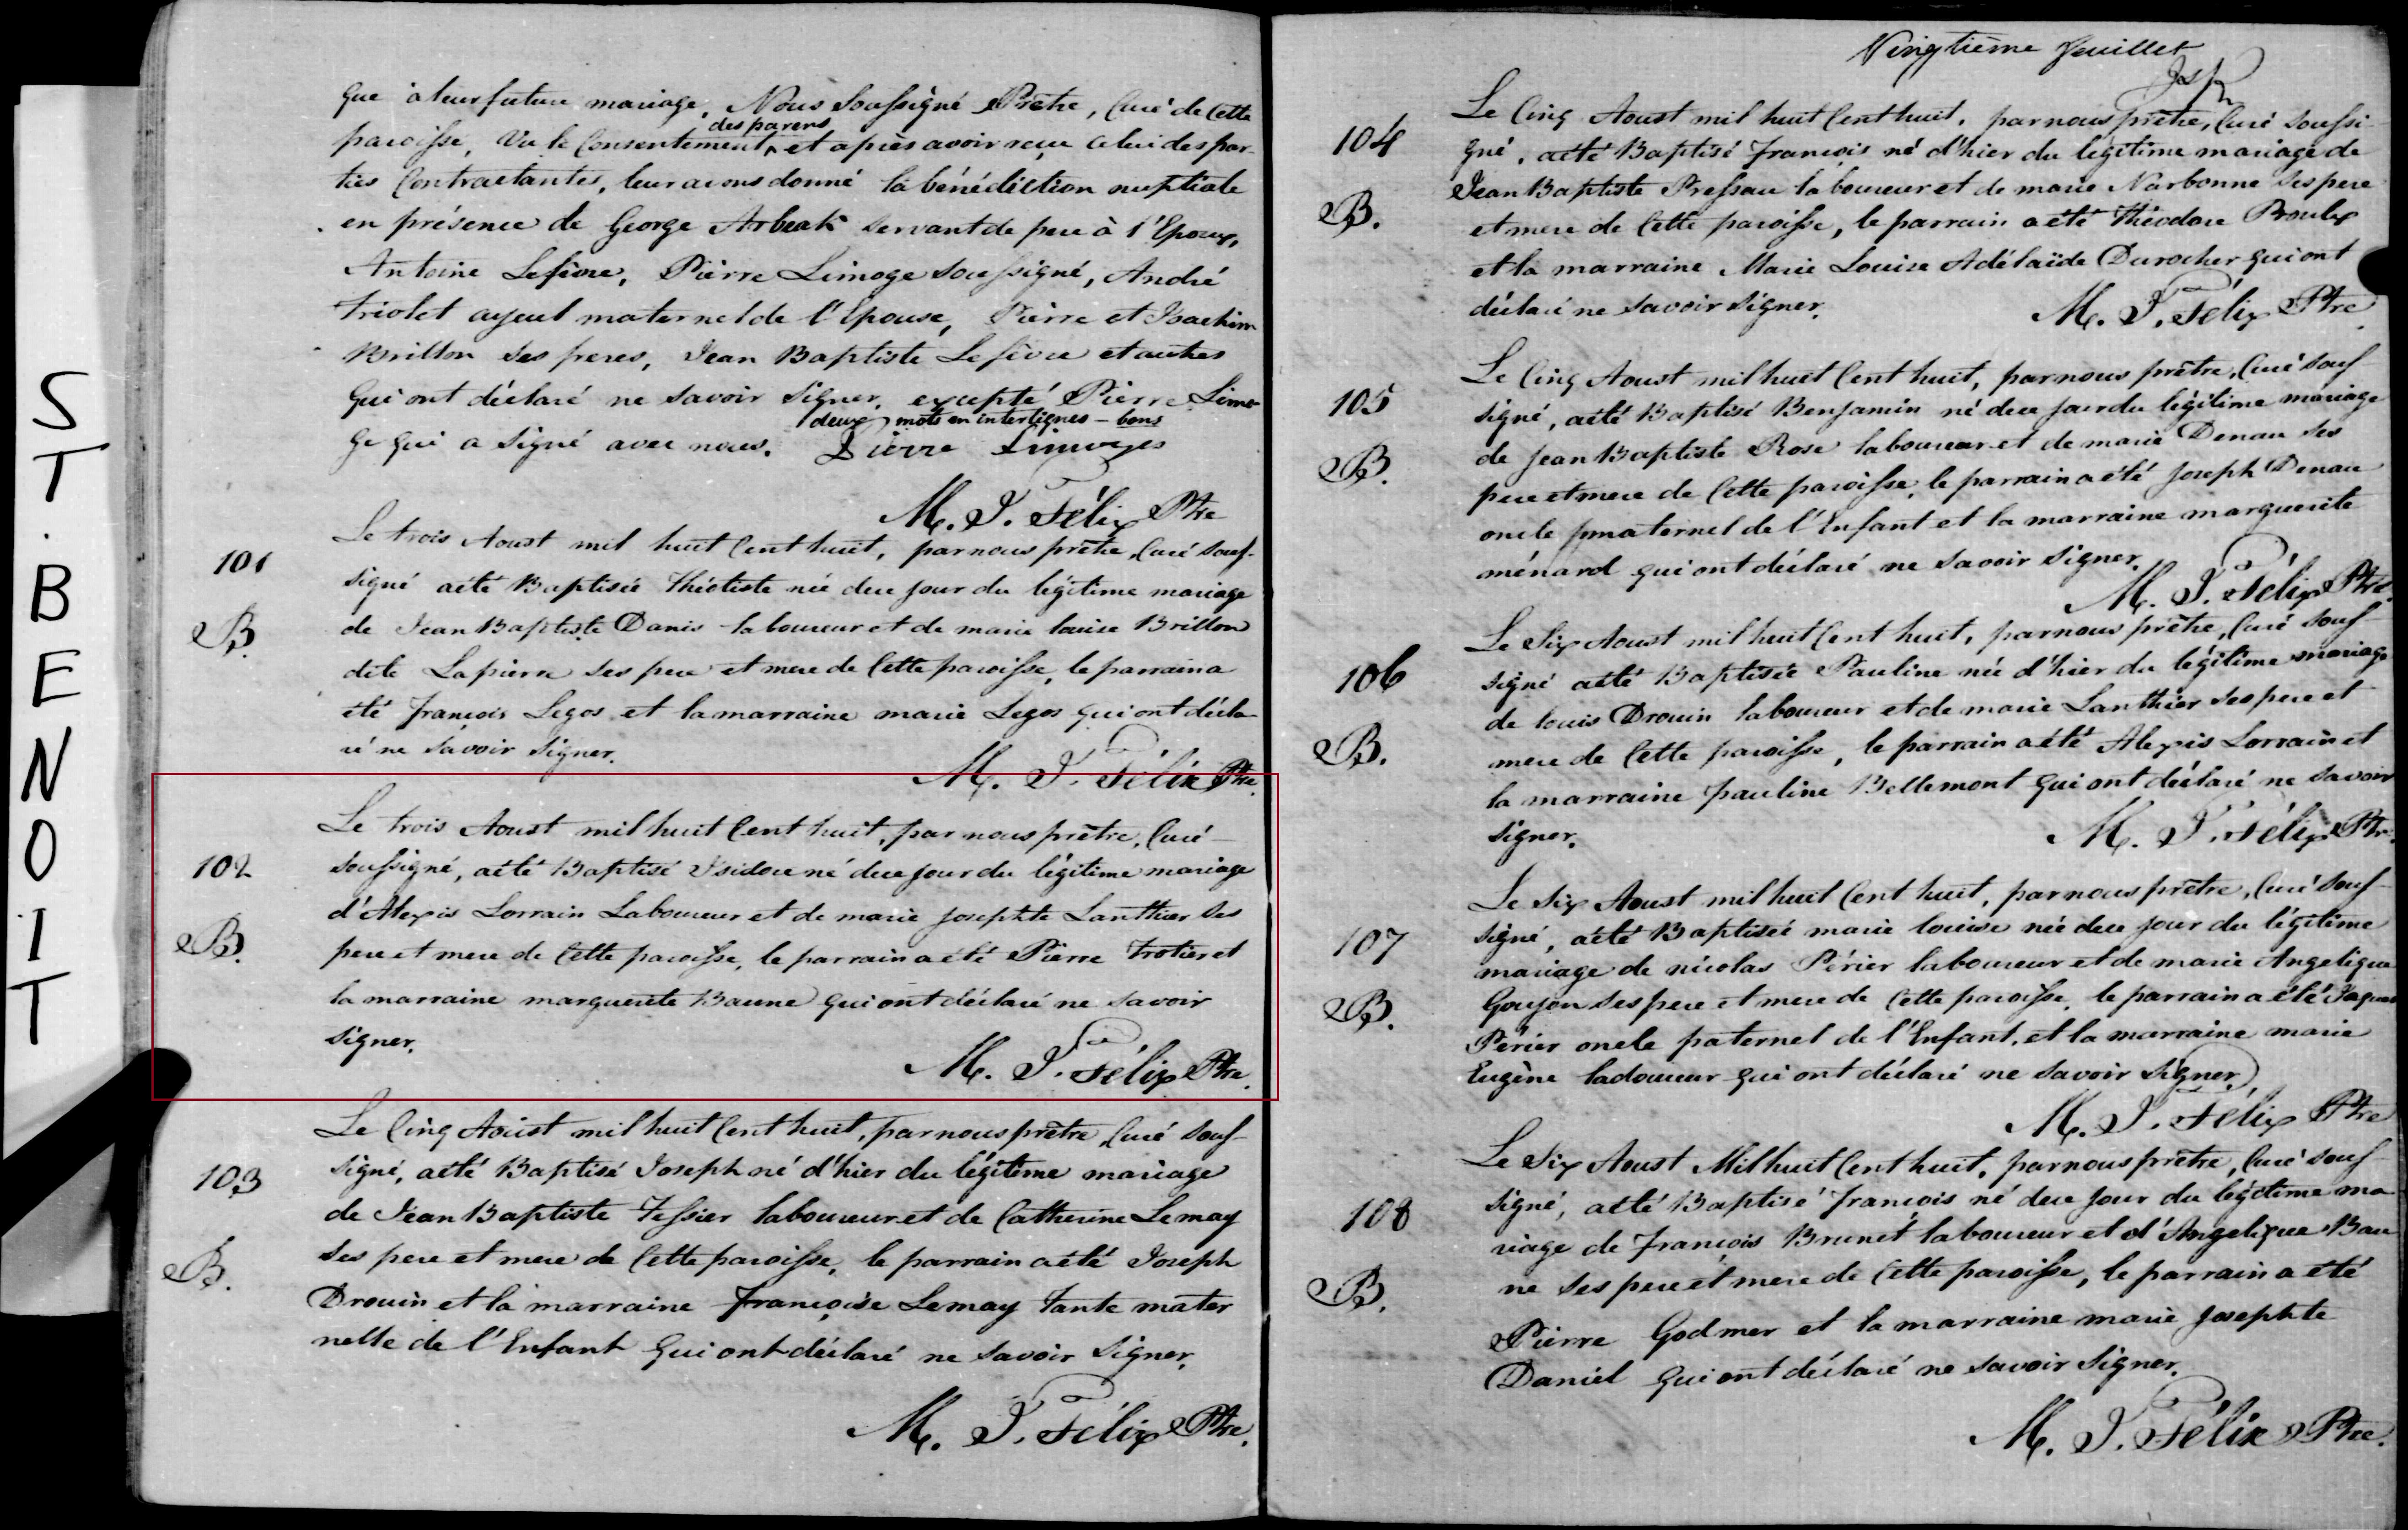 ST. BENOIT
que à leur future mariage, Nous Soussigné Prêtre, Curé de Cette
paroisse, Vu le Consentement des parens, et après avoir reçu celui des par-
ties Contractantes, leur avons donné la bénédiction nuptiale
en présence de George Arbeak servant de pere à l'Epoux,
Antoine Lefevre, Pièrre Limoge soussigné, André
triolet ayeul maternel de l'Epouse, Pièrre et Joachim
Brillon ses freres, Jean Baptiste Lefevre et autres
qui ont déclaré ne savoir signer, excepté Pierre Limo-
deux mots en interlignes - bons
ge qui a signé avec nous. Pierre Limoges
M. J. Félix Ptre
Le trois Aoust mil huit Cent huit, par nous prêtre, Curé sous-
101
signé a été Baptisée Théotiste née de ce jour du légitime mariage
B.
de Jean Baptiste Danis laboureur et de marie louise Brillon
dite Lapierre ses pere et mere de Cette paroisse, le parrain a
été françois Legos et la marraine marie Legos qui ont décla-
ré ne savoir signer.
M. J. Félix Ptre.
Le trois Aoust mil huit Cent huit, par nous prêtre, Curé
102
soussigné, a été Baptisé Isidore né de ce jour du légitime mariage
d'Alexis Lorrain Laboureur et de marie josephte Lanthier ses
B.
pere et mere de Cette paroisse, le parrain a été Pièrre trotier et
la marraine marguerite Baune qui ont déclaré ne savoir
signer.
M. J. Félix Ptre.
Le Cinq Aoust mil huit Cent huit, par nous prêtre, Curé sous-
103
signé, a été Baptisé Joseph né d'hier du légitime mariage
de Jean Baptiste Tessier laboureur et de Catherine Lemay
B.
ses pere et mere de Cette paroisse, le parrain a été Joseph
Drouin et la marraine françoise Lemay tante mater
nelle de l'Enfant qui ont déclaré ne savoir signer.
M. J. Félix Ptre.
Vingtième feuillet
Le Cinq Aoust mil huit Cent huit, par nous prêtre, Curé soussi-
104
gné, a été Baptisé françois né d'hier du légitime mariage de
Jean Baptiste Pressau laboureur et de marie Narbonne ses pere
B.
et mere de Cette paroisse, le parrain a été Théodore Proulx
et la marraine Marie Louise Adélaïde Durocher qui ont
déclaré ne savoir signer.
M. J. Félix Ptre
Le Cinq Aoust mil huit Cent huit, par nous prêtre, Curé sous-
105
signé, a été Baptisé Benjamin né de ce jour du légitime mariage
de Jean Baptiste Rose laboureur et de marie Denau ses
B.
pere et mere de Cette paroisse, le parrain a été Joseph Denau
oncle maternel de l'Enfant et la marraine marguerite
ménard qui ont déclaré ne savoir signer.
M. J. Félix Ptre.
Le Six Aoust mil huit Cent huit, par nous prêtre, Curé sous-
106
signé a été Baptisée Pauline née d'hier du légitime mariage
de louis Drouin laboureur et de marie Lanthier ses pere et
B.
mere de Cette paroisse, le parrain a été Alexis Lorrain et
la marraine pauline Bellemont qui ont déclaré ne savoir
signer.
M. J. Félix Ptre.
Le Six Aoust mil huit Cent huit, par nous prêtre, Curé sous-
107
signé, a été Baptisée marie louise née de ce jour du légitime
mariage de nicolas Périer laboureur et de marie Angelique
B.
Goujon ses pere et mere de Cette paroisse, le parrain a été Jaques
Périer oncle paternel de l'Enfant, et la marraine marie
Eugène ladouceur qui ont déclaré ne savoir signer.
M. J. Félix Ptre
Le Six Aoust Mil huit Cent huit, par nous prêtre, Curé sous-
108
signé, a été Baptisé françois né de ce jour du légitime ma-
riage de françois Brunet laboureur et d'Angelique Bau
B.
ne ses pere et mere de Cette paroisse, le parrain a été
Pièrre Godmer et la marraine marie josephte
Daniel qui ont déclaré ne savoir signer.
M. J. Félix Ptre.